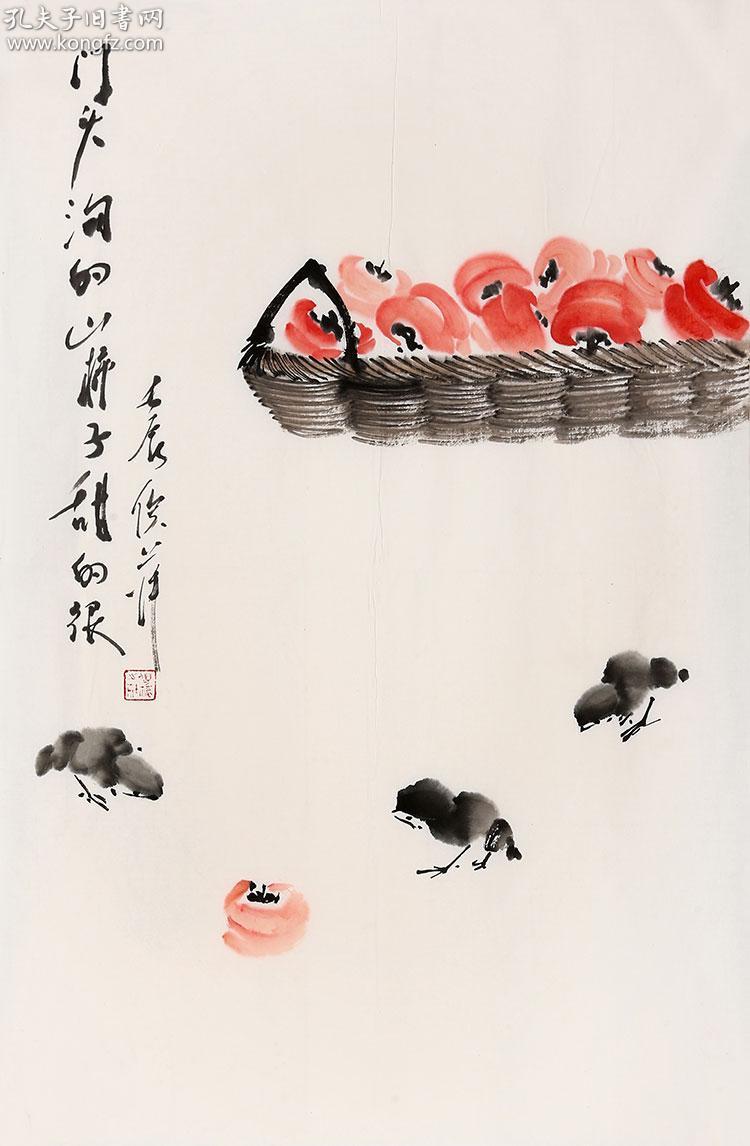 孔夫子旧书网
www.kongfz.com
门头沟的山柿子甜的很
壬辰